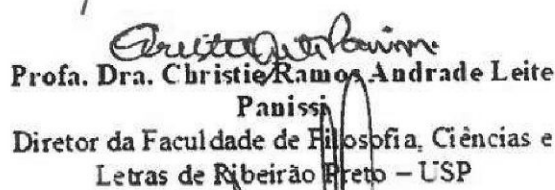 Profa. Dra. Christie Ramos Andrade Leite
Panissi
Diretor da Faculdade de Filosofia, Ciências e
Letras de Ribeirão Preto – USP